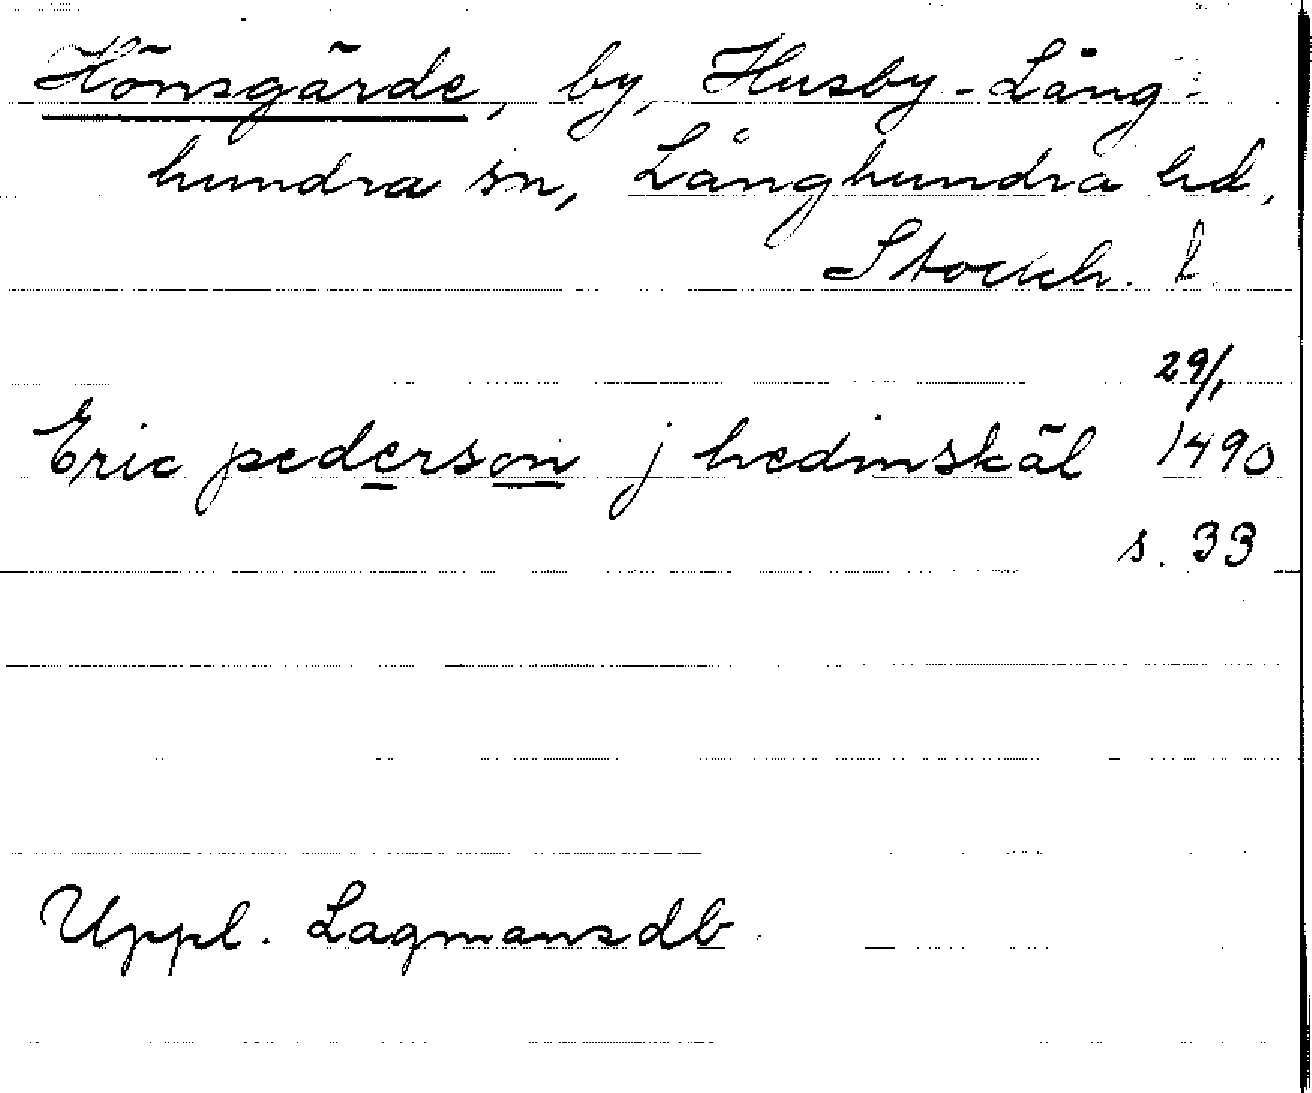 Hönsgärde, by, Husby-Lång-
hundra sn, Långhundra hd,
Stockh. l.
29/1
Eric pederson j hedinskäl 1490
s. 33
Uppl. Lagmansdb